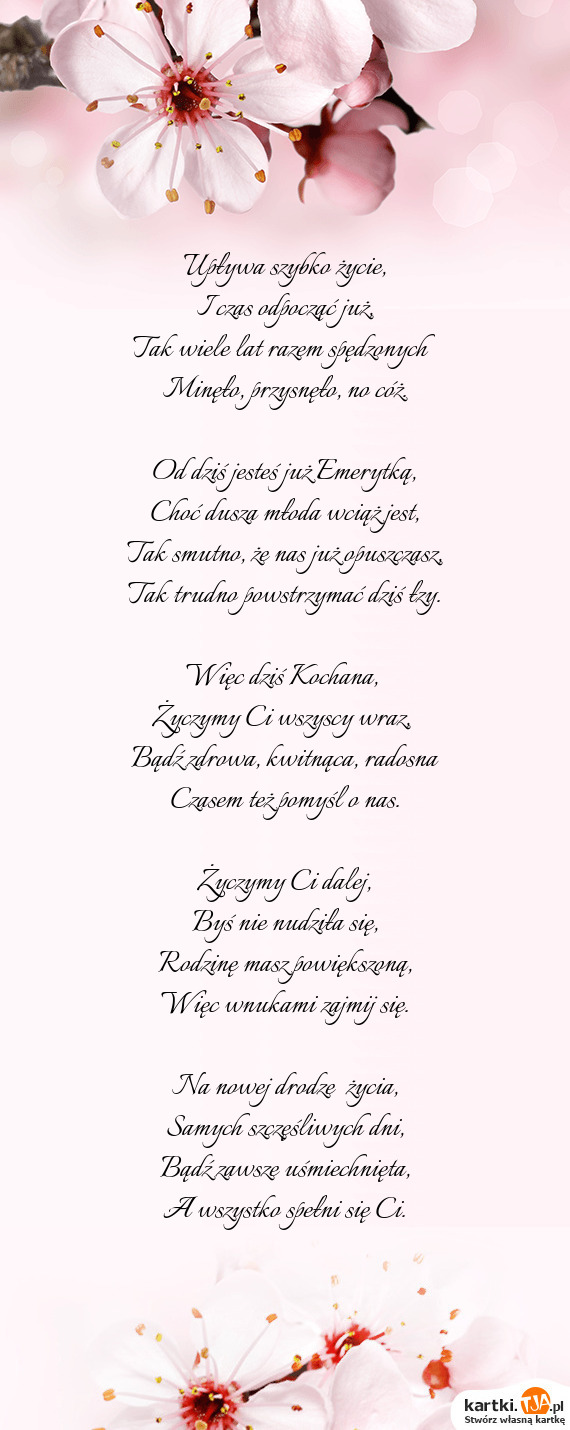 Upływa szybko życie,
I czas odpocząć już,
Tak wiele lat razem spędzonych
Minęło, przysnęło, no cóż.
Od dziś jesteś już Emerytką,
Choć dusza młoda wciąż jest,
Tak smutno, że nas już opuszczasz,
Tak trudno powstrzymać dziś łzy.
Więc dziś Kochana,
Życzymy Ci wszyscy wraz,
Bądź zdrowa, kwitnąca, radosna
Czasem też pomyśl o nas.
Życzymy Ci dalej,
Byś nie nudziła się,
Rodzinę masz powiększoną,
Więc wnukami zajmij się.
Na nowej drodze życia,
Samych szczęśliwych dni,
Bądź zawsze uśmiechnięta,
A wszystko spełni się Ci.
kartki.TJA.pl
Stwórz własną kartkę